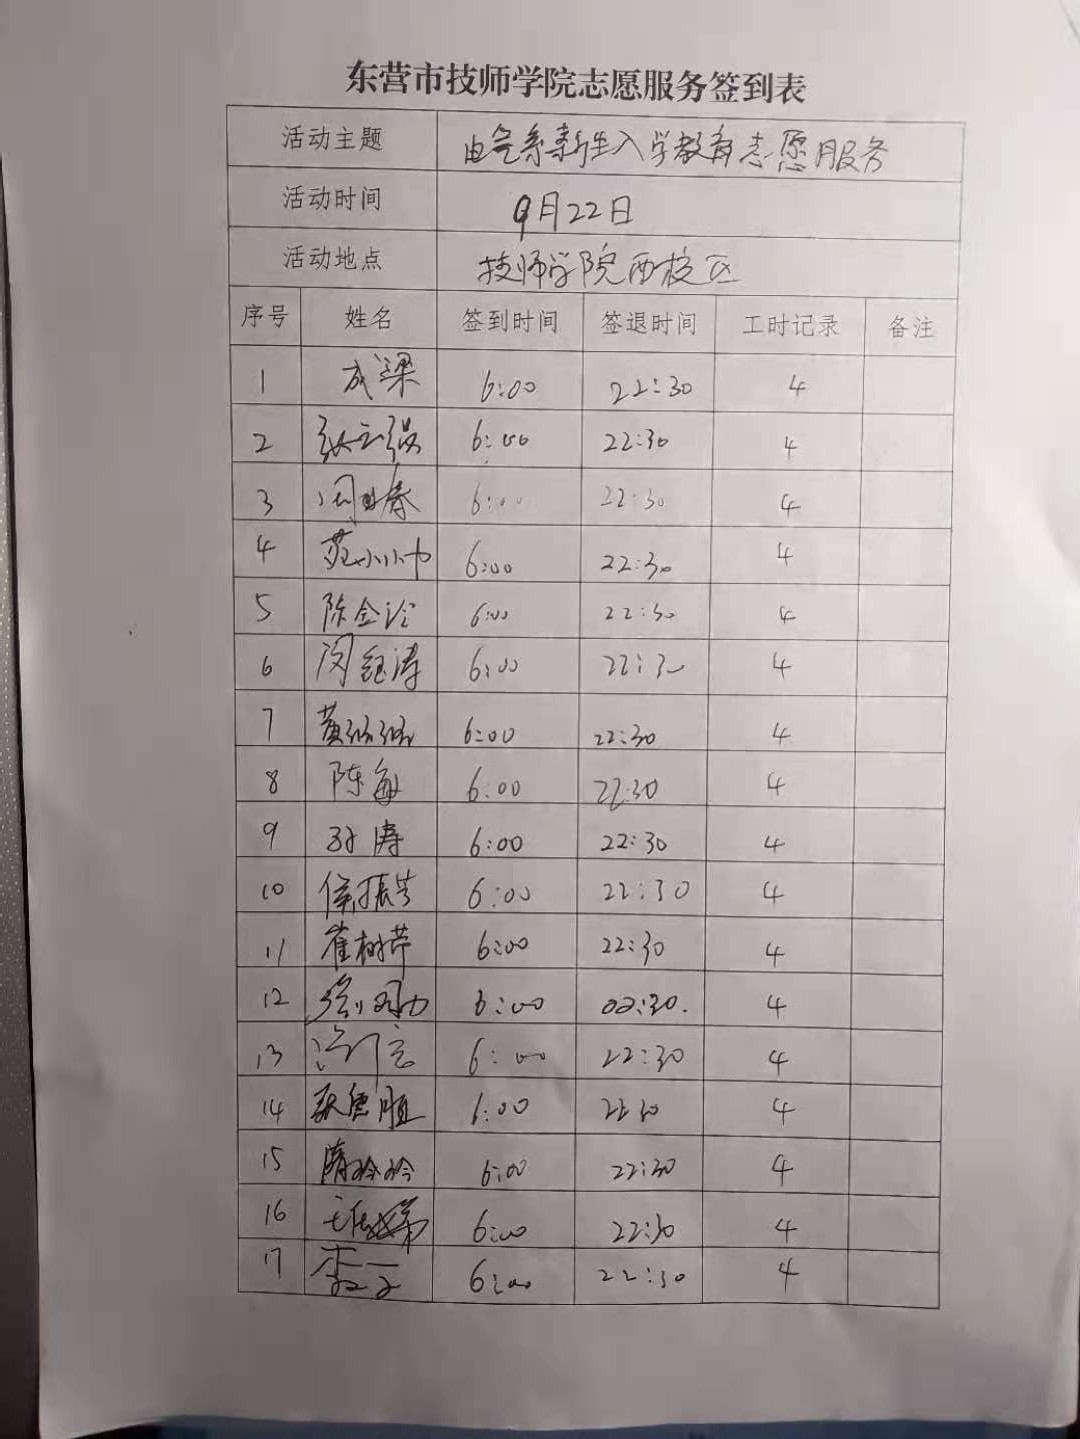 东营市技师学院志愿服务签到表
活动主题 电气系新生入学教育志愿服务
活动时间 9月22日
活动地点 技师学院西校区
序号 姓名 签到时间 签退时间 工时记录 备注
1 成梁 6:00 22:30 4
2 6:00 22:30 4
3 6:00 22:30 4
4 苑小小 6:00 22:30 4
5 陈金 6:00 22:30 4
6 闵钰涛 6:00 22:30 4
7 黄 6:00 22:30 4
8 陈敏 6:00 22:30 4
9 孙涛 6:00 22:30 4
10 侯振 6:00 22:30 4
11 崔树芹 6:00 22:30 4
12 6:00 4
13 6:00 22:30 4
14 6:00 22:30 4
15 隋玲玲 6:00 22:30 4
16 6:00 22:30 4
17 6:00 22:30 4